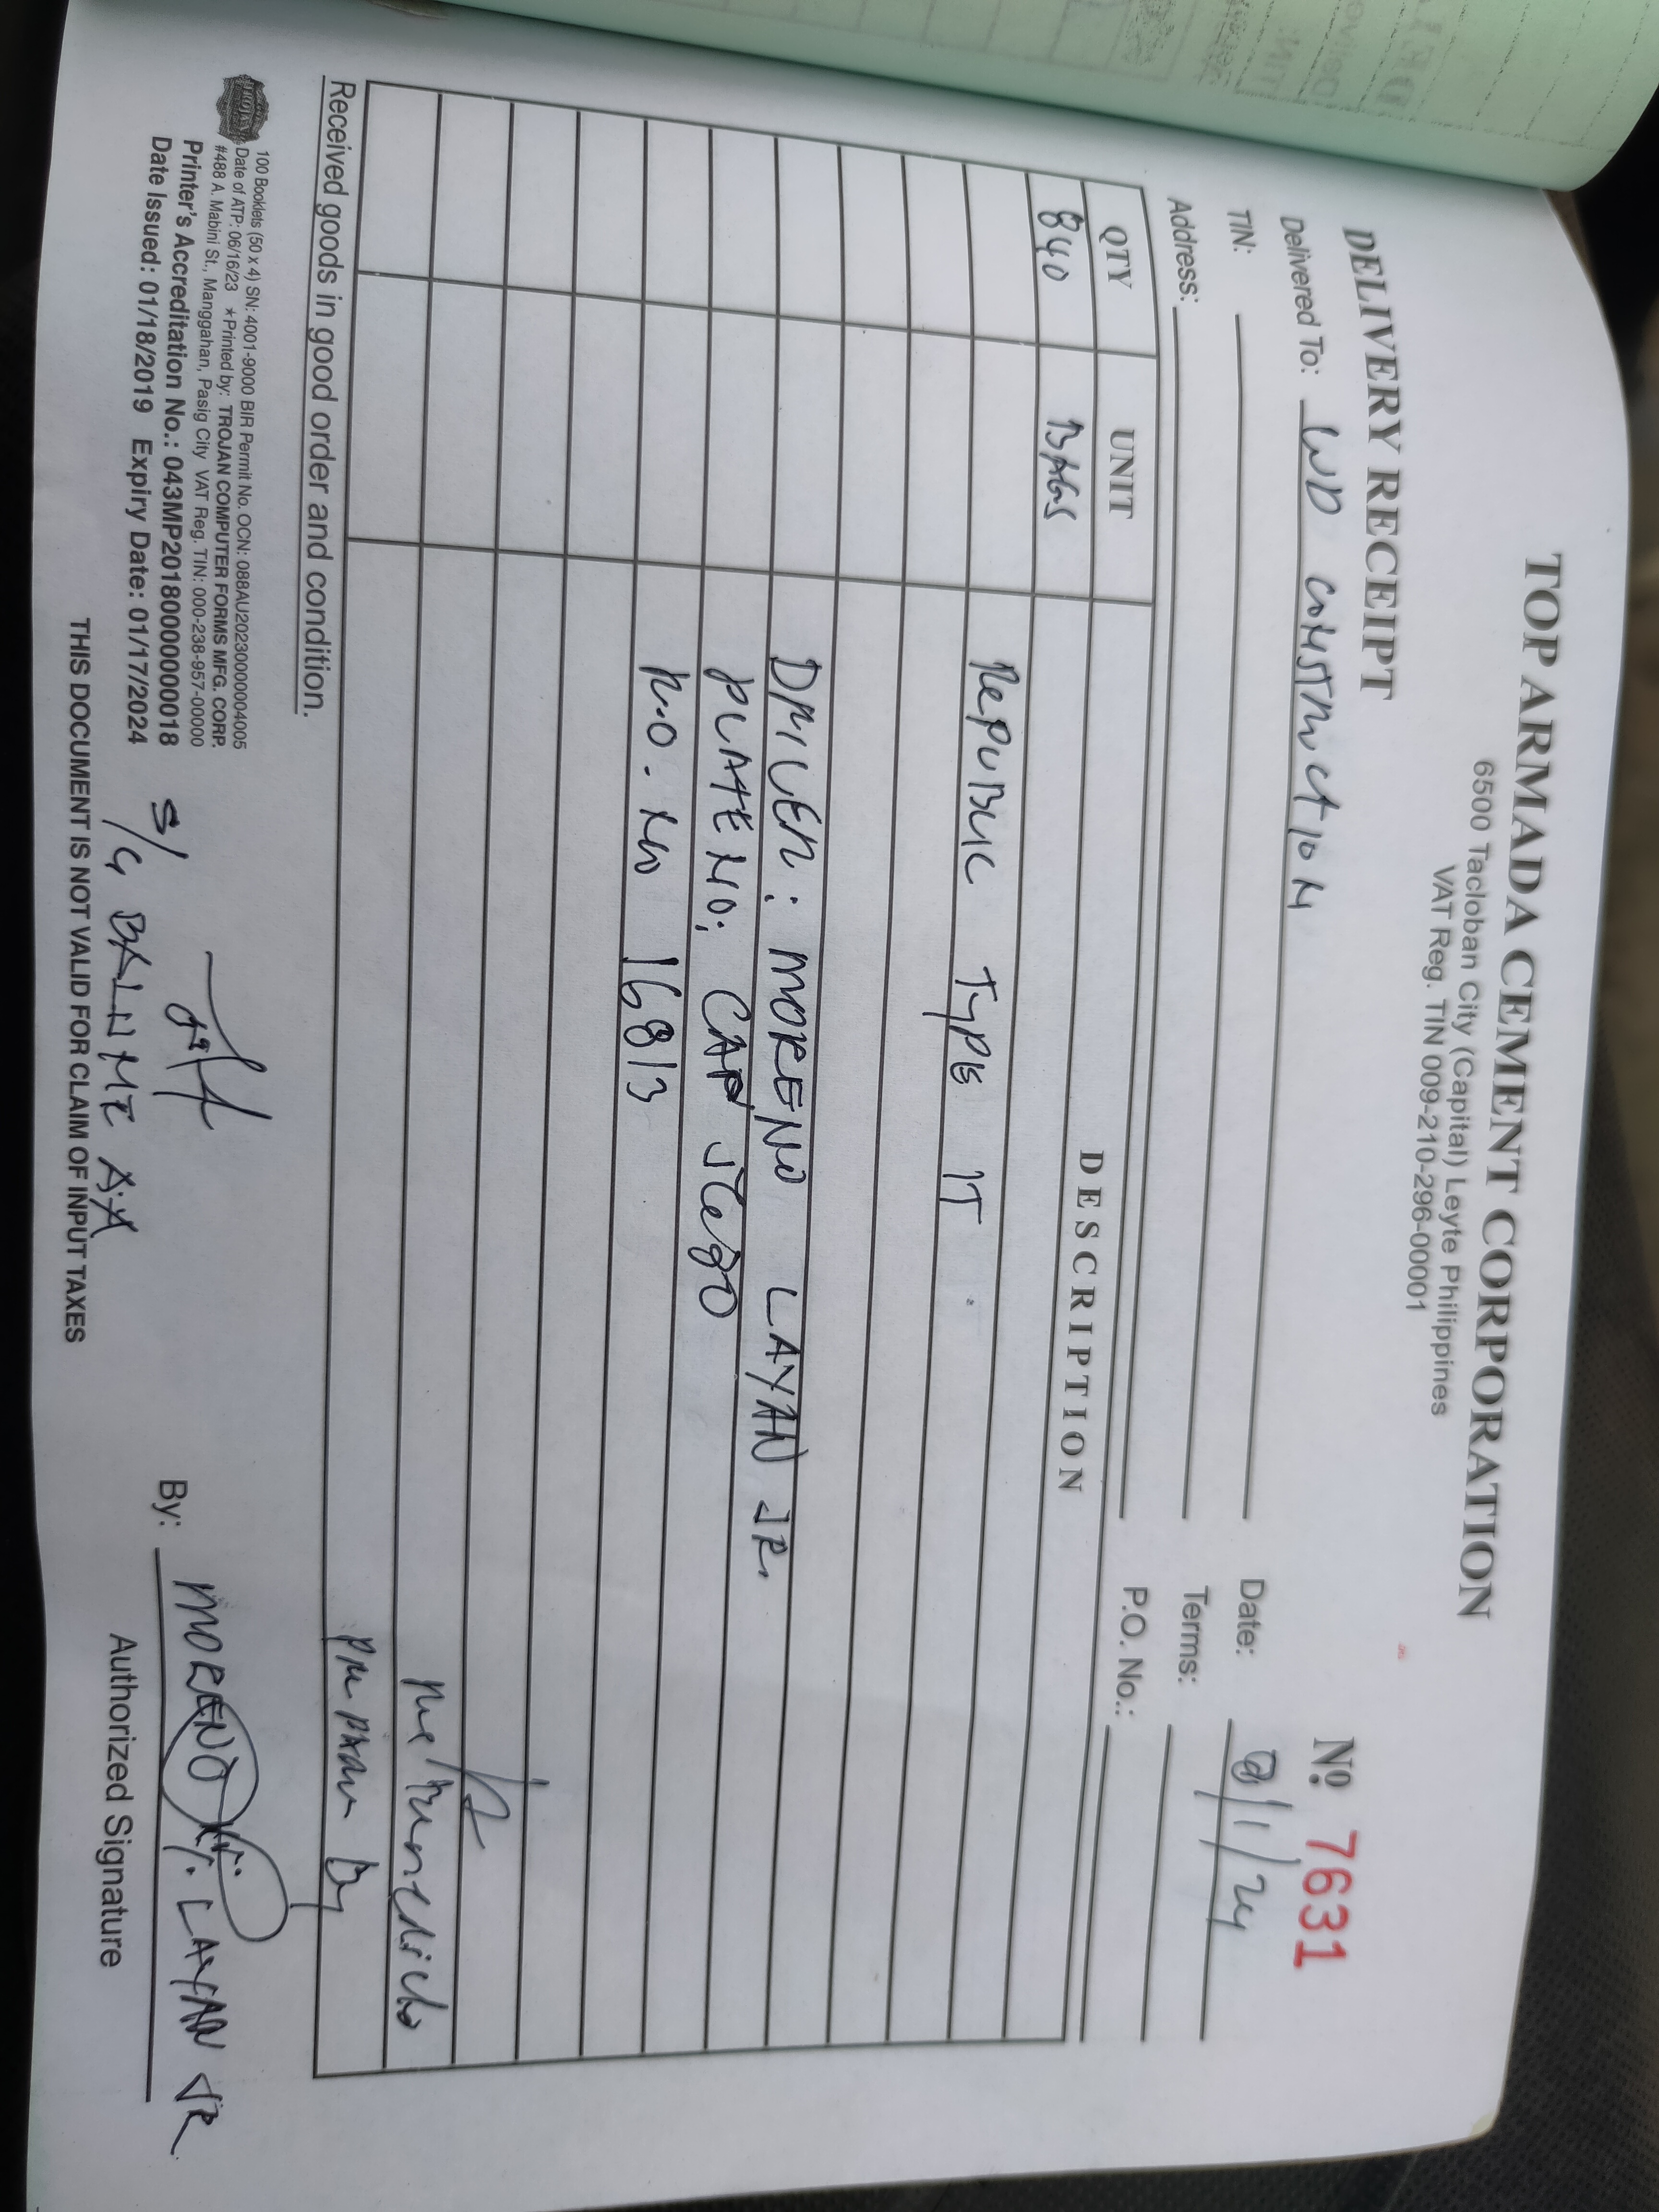 TOP ARMADA CEMENT CORPORATION
6500 Tacloban City (Capital) Leyte Philippines
VAT Reg. TIN 009-210-296-00001
DELIVERY RECEIPT
Nº 7631
Delivered To: WD CONSTRUCTION
Date: 8/1/24
TIN:
Terms:
Address:
P.O. No.:
QTY UNIT DESCRIPTION
840 BAGS
REPUBLIC TYPE 1T
DRIVER: MORENO LAYAN JR.
PLATE NO: CAP
R.O. NO 16813
PREPARED BY
Received goods in good order and condition.
100 Booklets (50 x 4) SN: 4001-9000 BIR Permit No. OCN: 088AU20230000004005
Date of ATP: 06/16/23 ★Printed by: TROJAN COMPUTER FORMS MFG. CORP.
#488 A. Mabini St., Manggahan, Pasig City VAT Reg. TIN: 000-238-957-00000
Printer's Accreditation No.: 043MP20180000000018
Date Issued: 01/18/2019 Expiry Date: 01/17/2024
S/G
By: MORENO LAYAN JR.
Authorized Signature
THIS DOCUMENT IS NOT VALID FOR CLAIM OF INPUT TAXES